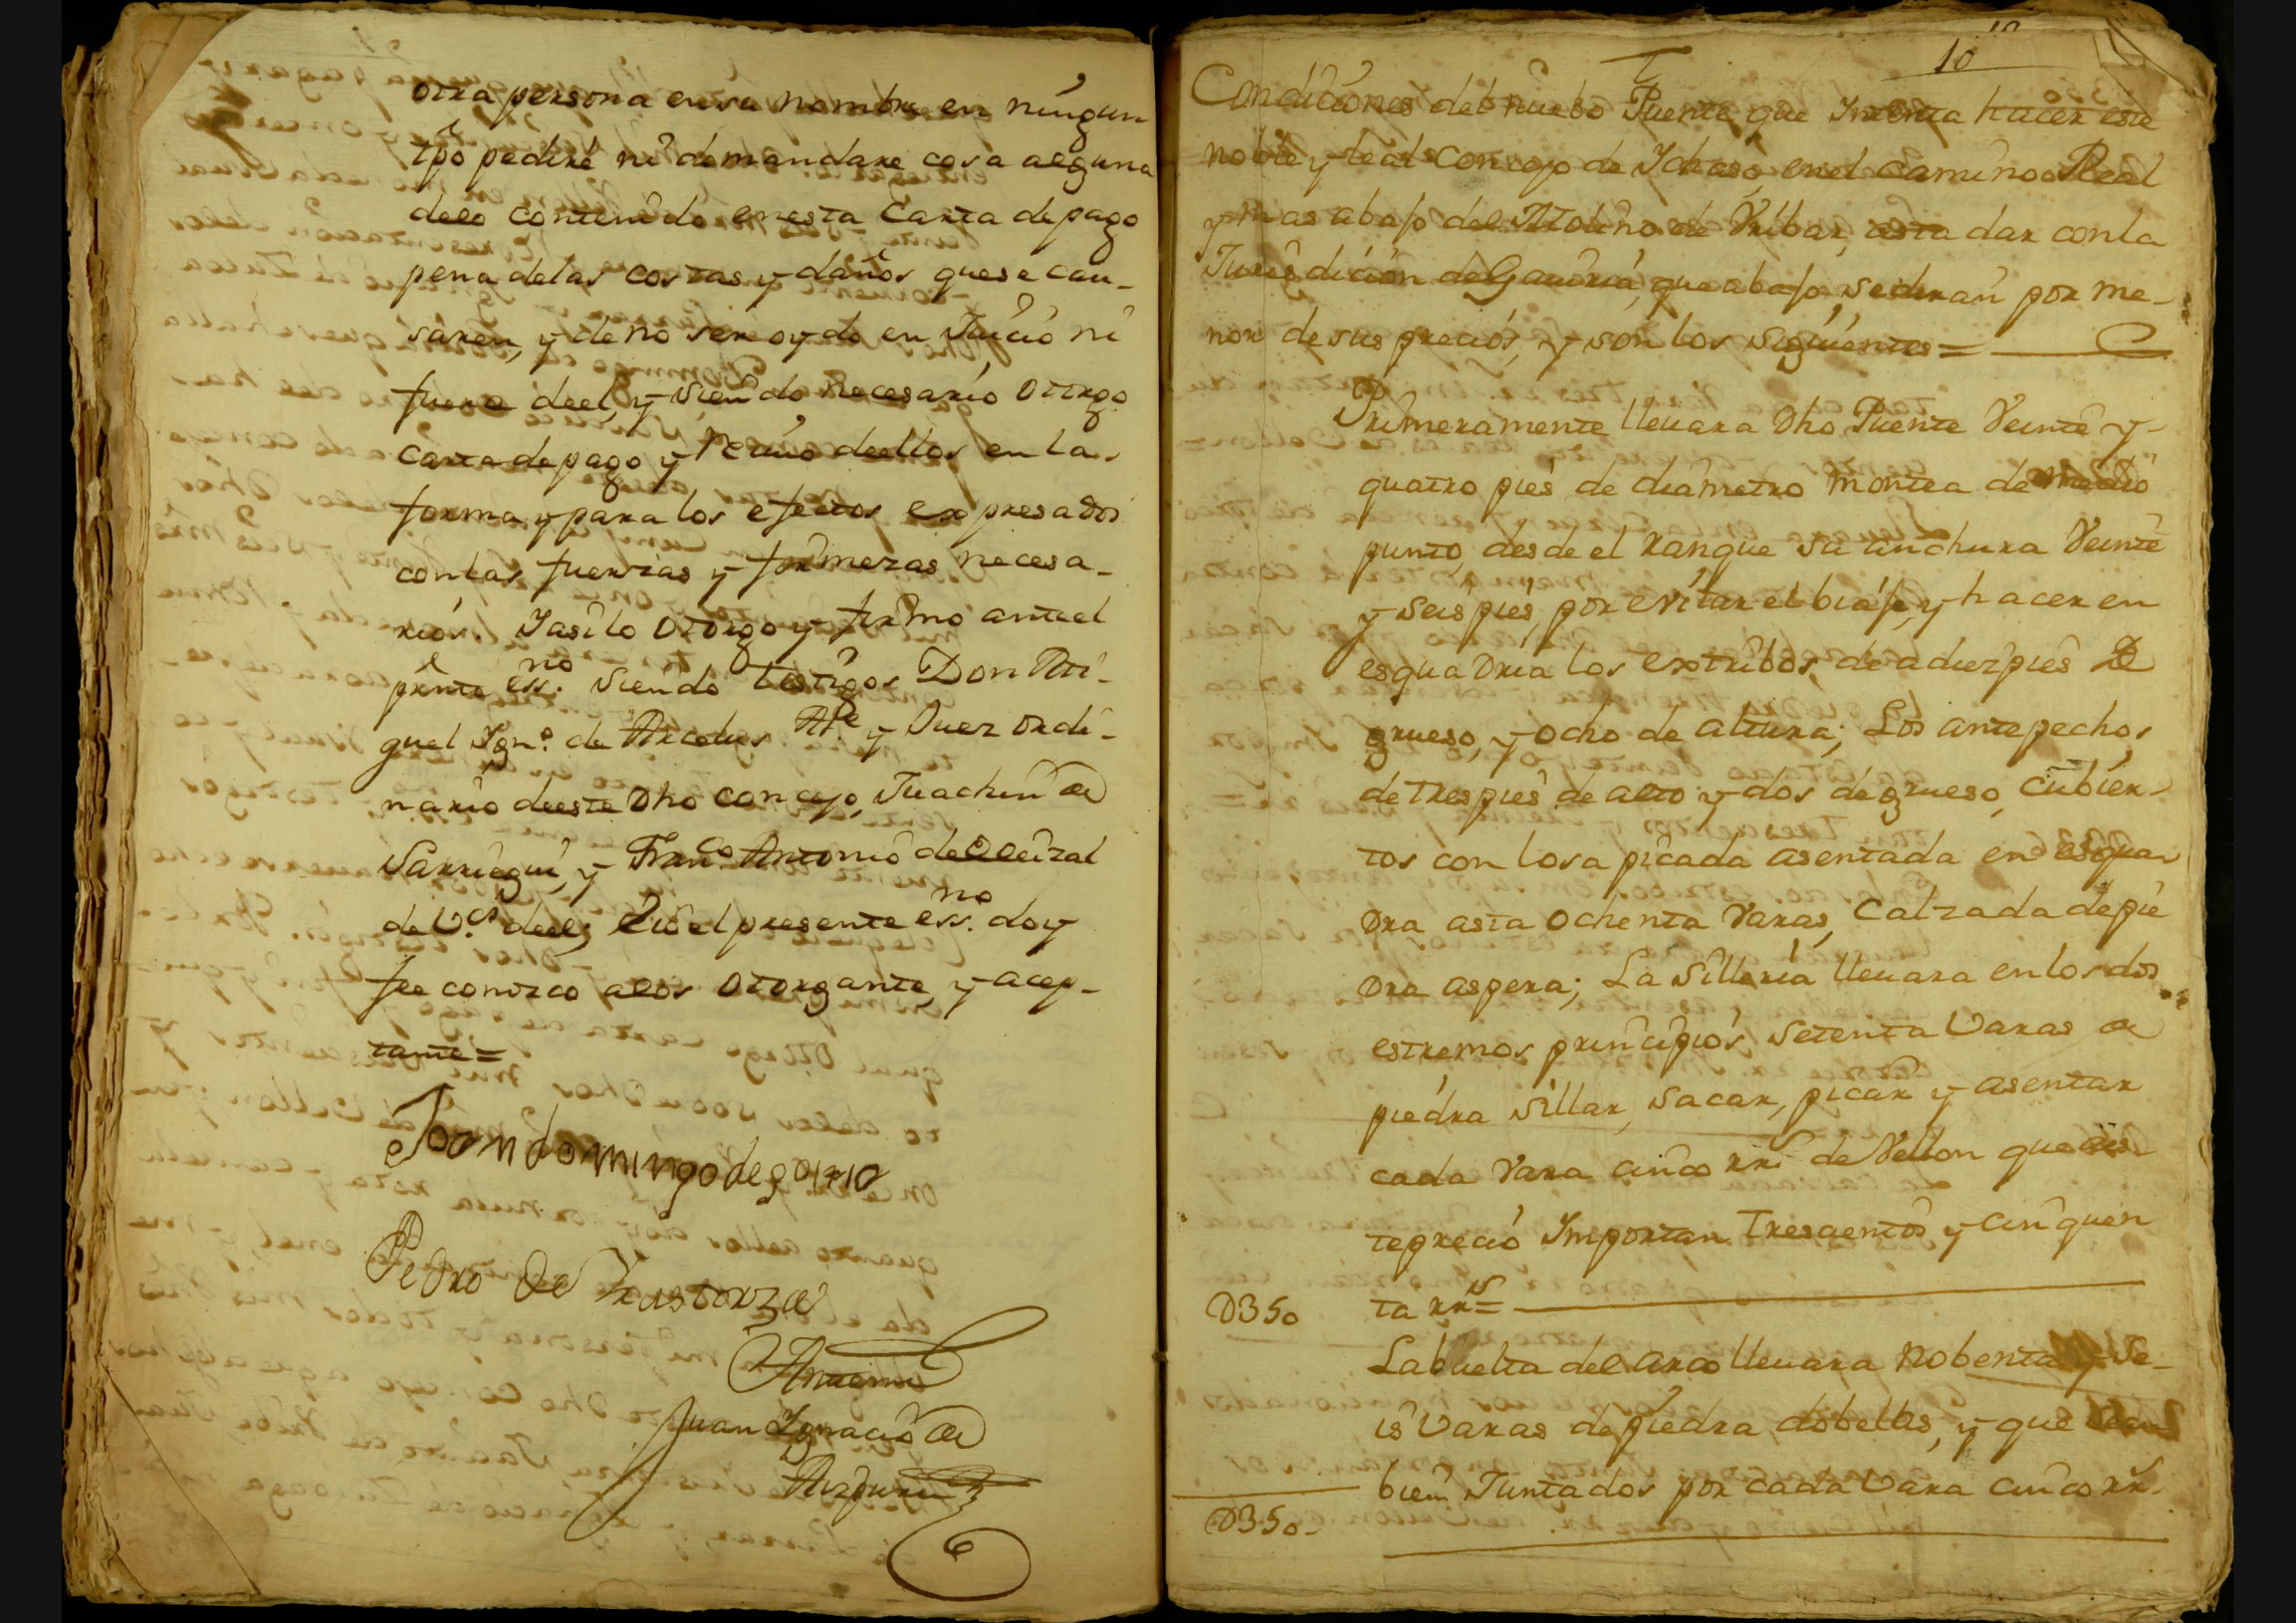 otra persona en su nombre en ningun
tpo pediré ni demandare cosa alguna
delo contenido en esta Carta de pago
pena delas costas y daños que se cau-
saren, y de no ser oydo en Juicio ni
fuera deel, y siendo necesario otorgo
carta de pago y reciuo deellos en la
forma y para los efectos expresados
con las fuerzas y firmezas necesa-
rios. Y asi lo otorgo y firmo ante el
presnte essno. siendo testigos Don Mi-
guel Ignº. de Arcelus Alte y Juez ordi-
nario deeste dho concejo, Juachin de
Sarriegui, y Franco Antonio de
de Vos deel; e io el presente essno. doy
fee conozco alos otorgante, y acep-
tante =
Joan domingo de goitio
Pedro de Yrastorza
Antemi
Juan Ignacio de
Aizpuru
10
10
Condiciones del nuebo Puente que Intenta hacer este
noble y leal Concejo de Ichaso, en el Camino Real
y mas abajo del Molino de Vribar, asta dar con la
Jurisdición de Gauiria, que abajo se diran por me-
nor de sus precios, y son los siguientes =
Primeramente lleuara dho Puente Veinte y
quatro pies de diametro montea de medio
punto, desde el rangue su anchura Veinte
y seis pies, por evitar el biaje, y hacer en
esquadria los extribos, de a diez pies de
grueso, y ocho de altura; Los antepechos
de tres pies de alto y dos de grueso, cubier-
tos con losa picada asentada en esqua
dra asta ochenta Varas, Calzada de pie
dra aspera; La silleria lleuara en los dos
estremos principios, setenta Varas de
piedra sillar, sacar, picar y asentar
cada Vara cinco rrs de Vellon que aes
te precio Importan Trescientos y cinquen
D350 ta rrs =
La buelta del arco lleuara nobenta y se-
is Varas de piedra dobellas, y que sean
bien Juntados por cada Vara cinco rrs.
D350-